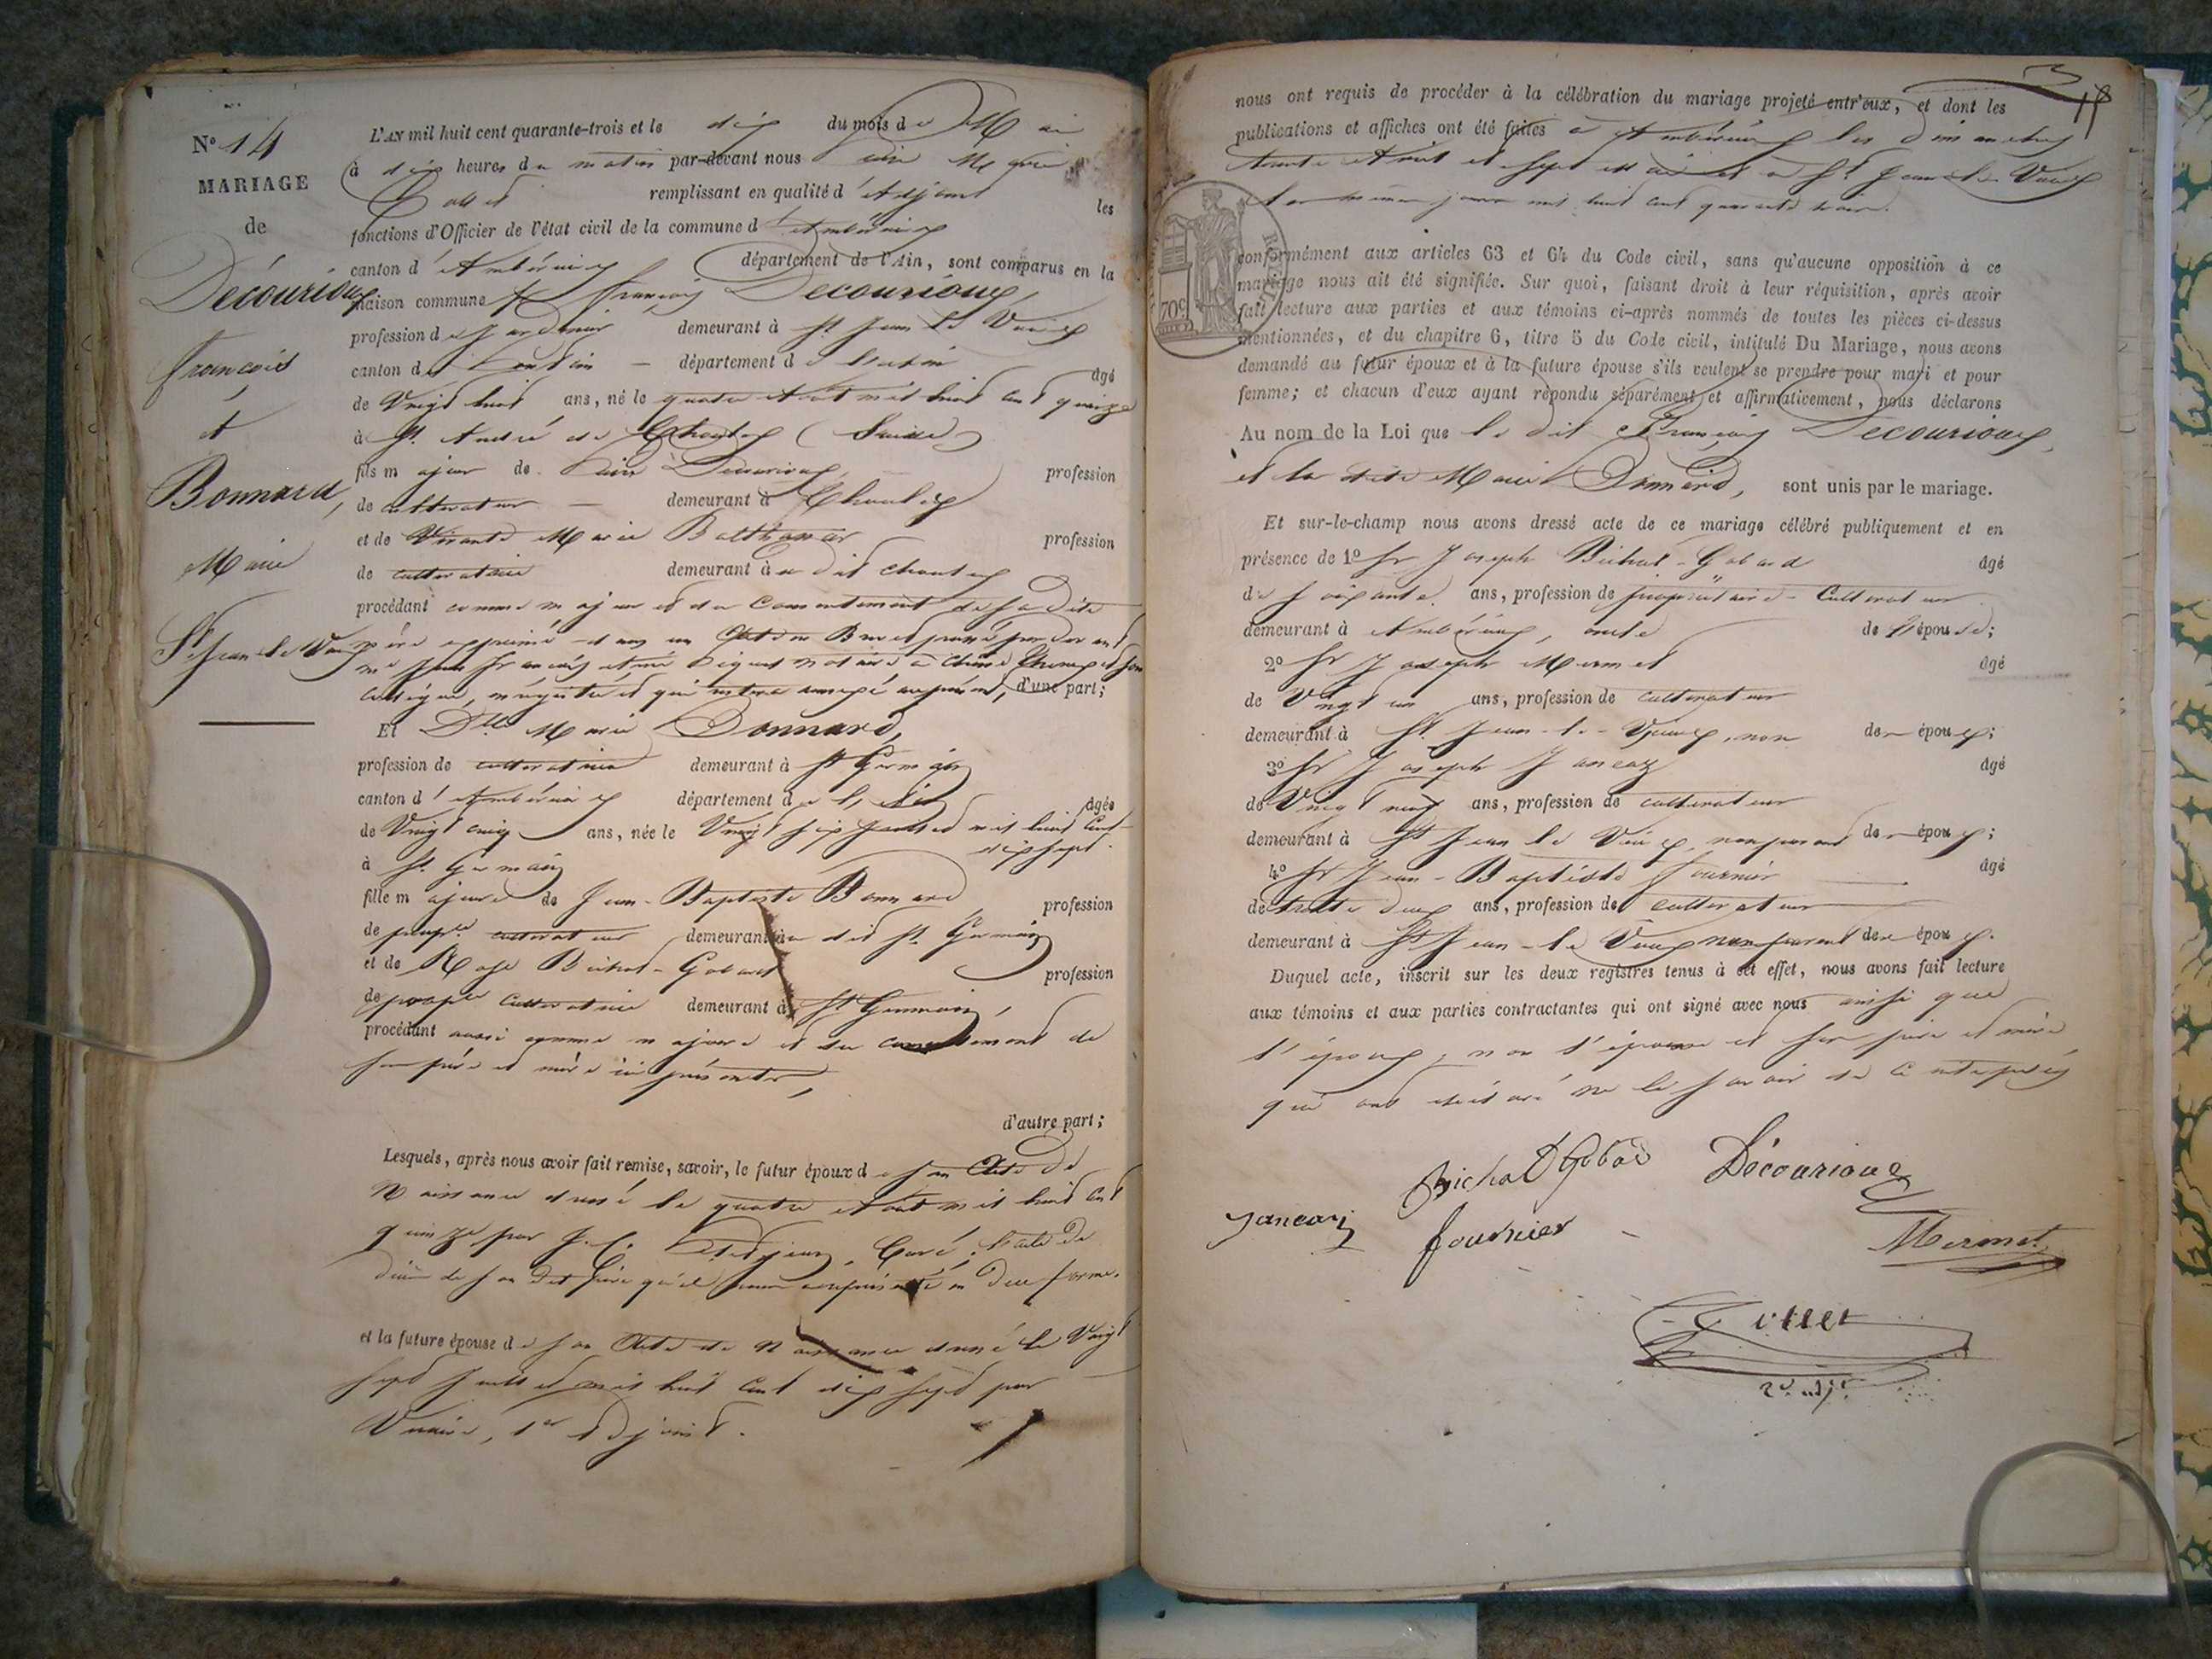 N° 14
MARIAGE
de
Decourioux
françois
et
Bonnard,
Marie
St Jean le Vieux
L'AN mil huit cent quarante-trois et le dix du mois de Mai
à dix heures du matin par-devant nous
remplissant en qualité d'Adjoint les
fonctions d'Officier de l'état civil de la commune d'Ambérieux
canton d'Ambérieux département de l'Ain, sont comparus en la
maison commune Sr françois Decourioux,
profession de Jardinier demeurant à St Jean le Vieux
canton de département de
âgé
de Vingt huit ans, né le quatre Août mil huit cent quinze
à St. André de Choulex (Suisse)
fils majeur de Decourioux profession
de cultivateur demeurant à Choulex
et de Vivante Marie Balthazar profession
de cultivatrice demeurant au dit Choulex
procédant comme majeur et du consentement de sa dite
mère exprimé dans un Acte en Brevet passé par devant
me Jean François notaire à Chêne et son
collègue, enregistré et qui restera annexé au présent, d'une part;
Et Dlle Marie Bonnard,
profession de cultivatrice demeurant à St Germain
canton d'Ambérieux département de l'Ain
âgée
de Vingt cinq ans, née le Vingt six Juillet mil huit cent
dix sept.
à St. Germain
fille majeure de Jean-Baptiste Bonnard profession
de propre cultivateur demeurant au dit St. Germain
et de Rose Bichat-Gobard profession
de propre cultivatrice demeurant à St Germain,
procédant aussi comme majeure et du consentement de
ses père et mère ici présents,
d'autre part;
Lesquels, après nous avoir fait remise, savoir, le futur époux de son Acte de
Naissance dressé le quatre Août mil huit cent
quinze par J. C. Curé, l'acte de
décès de son dit père qu'il nous a représenté en due forme.
et la future épouse de son Acte de Naissance dressé le Vingt
sept Juillet mil huit cent dix sept par
1er adjoint.
nous ont requis de procéder à la célébration du mariage projeté entr'eux, et dont les
publications et affiches ont été faites à Ambérieux les dimanches
trente Avril et sept Mai et à St Jean le Vieux
les mêmes jours mil huit cent quarante trois.
70c
conformément aux articles 63 et 64 du Code civil, sans qu'aucune opposition à ce
mariage nous ait été signifiée. Sur quoi, faisant droit à leur réquisition, après avoir
fait lecture aux parties et aux témoins ci-après nommés de toutes les pièces ci-dessus
mentionnées, et du chapitre 6, titre 5 du Code civil, intitulé Du Mariage, nous avons
demandé au futur époux et à la future épouse s'ils veulent se prendre pour mari et pour
femme; et chacun d'eux ayant répondu séparément et affirmativement, nous déclarons
Au nom de la Loi que le dit François Decourioux,
et la dite Marie Bonnard, sont unis par le mariage.
Et sur-le-champ nous avons dressé acte de ce mariage célébré publiquement et en
présence de 1° Sr Joseph Bichat-Gobard âgé
de soixante ans, profession de propriétaire-Cultivateur
demeurant à Ambérieux, oncle de l'épouse;
2° Sr Joseph Mermet âgé
de Vingt un ans, profession de cultivateur
demeurant à St. Jean-le-Vieux, non des époux;
3° Sr Joseph Jancaz âgé
de Vingt neuf ans, profession de cultivateur
demeurant à St Jean le Vieux, non parent des époux;
4° Sr Jean-Baptiste Fournier âgé
de trente deux ans, profession de cultivateur
demeurant à St Jean-le Vieux non parent des époux.
Duquel acte, inscrit sur les deux registres tenus à cet effet, nous avons fait lecture
aux témoins et aux parties contractantes qui ont signé avec nous ainsi que
l'époux, non l'épouse et ses père et mère
qui ont déclaré ne le savoir de ce interpelés
Bichat Gobar Décourioux
Jancaz fournier Mermet
2e adjt